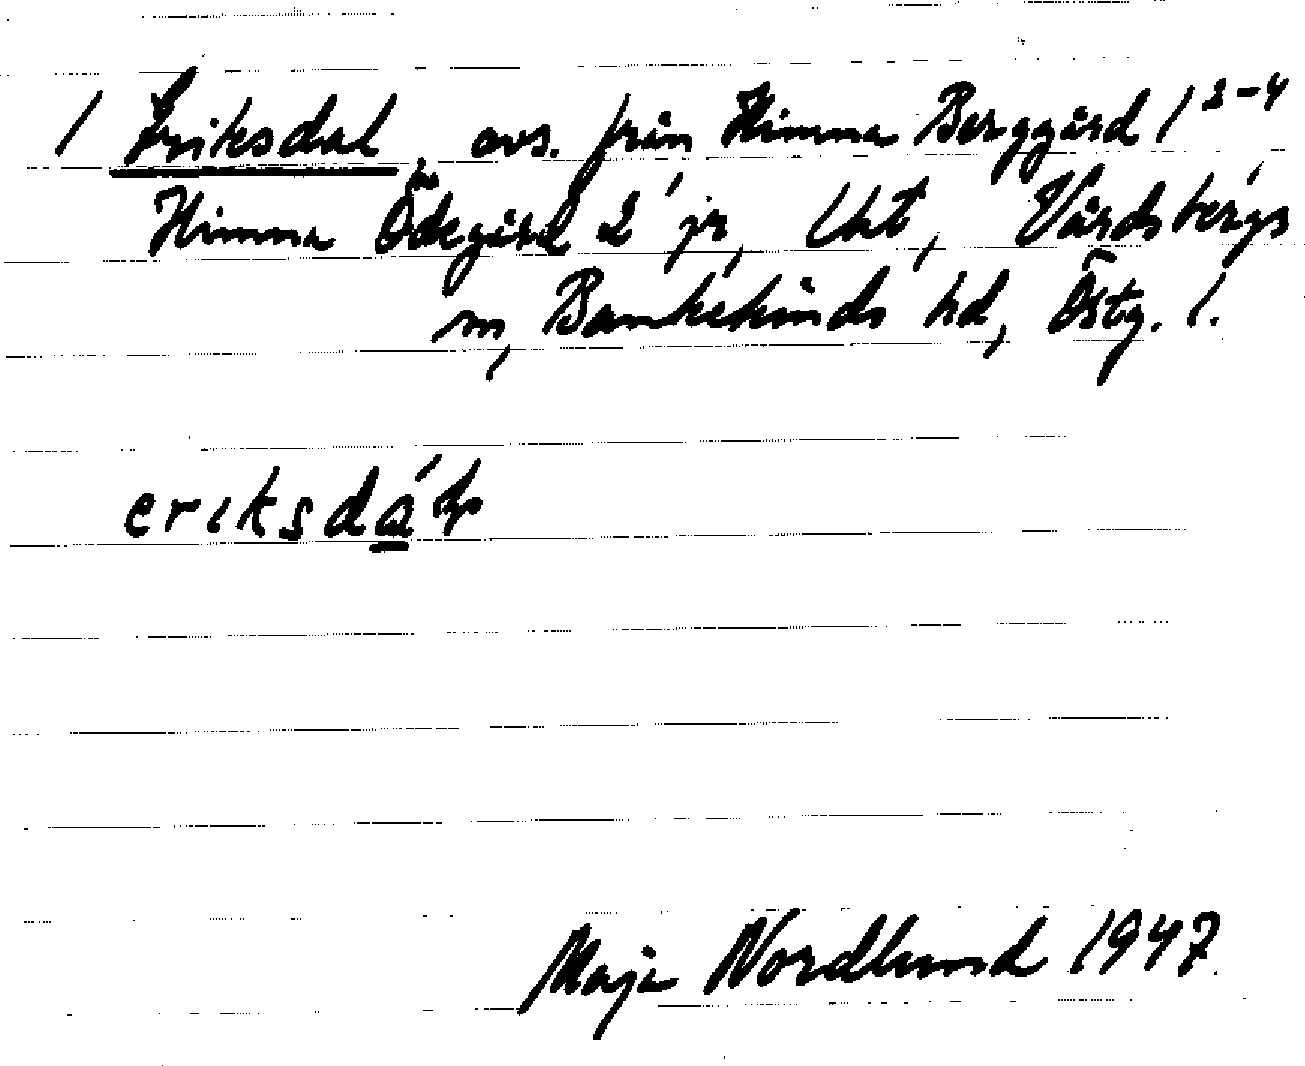 1 Eriksdal, avs. från Himna Berggård 1²⁻⁴
Himna Ödegård 2¹ jr, Uht, Vårdsbergs
sn, Bankekinds hd, Östg. l.
eriksdáɫ
Maja Nordlund 1947.